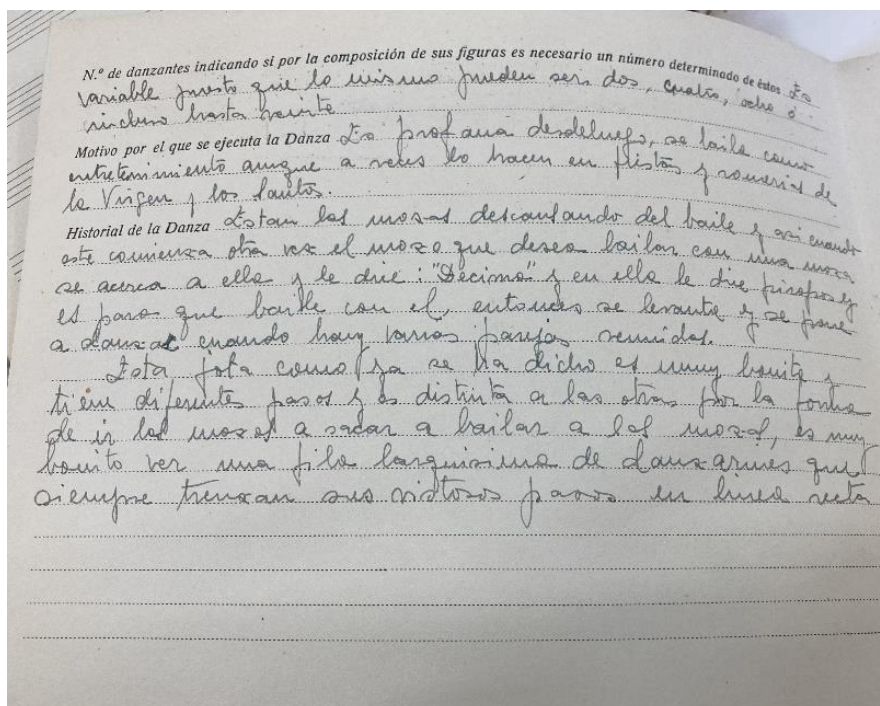 N.º de danzantes indicando si por la composición de sus figuras es necesario un número determinado de éstos Es
variable puesto que lo mismo pueden ser, dos, cuatro, ocho o
incluso hasta veinte
Motivo por el que se ejecuta la Danza Es profana desdeluego, se baila como
entretenimiento aunque a veces lo hacen en fiestas y romerias de
la Virgen y los Santos.
Historial de la Danza Estan las mozas descansando del baile y asi cuando
este comienza otra vez el mozo que desea bailar con una moza
se acerca a ella y le dice: "Decimo" y en ella le dice piropos y
es para que baile con el, entonces se levanta y se pone
a danzar cuando hay varias parejas reunidas.
Esta jota como ya se ha dicho es muy bonita y
tiene diferentes pasos y es distinta a las otras por la forma
de ir los mozos a sacar a bailar a las mozas, es muy
bonito ver una fila larguisima de danzarines que
siempre trenzan sus vistosos pasos en linea recta